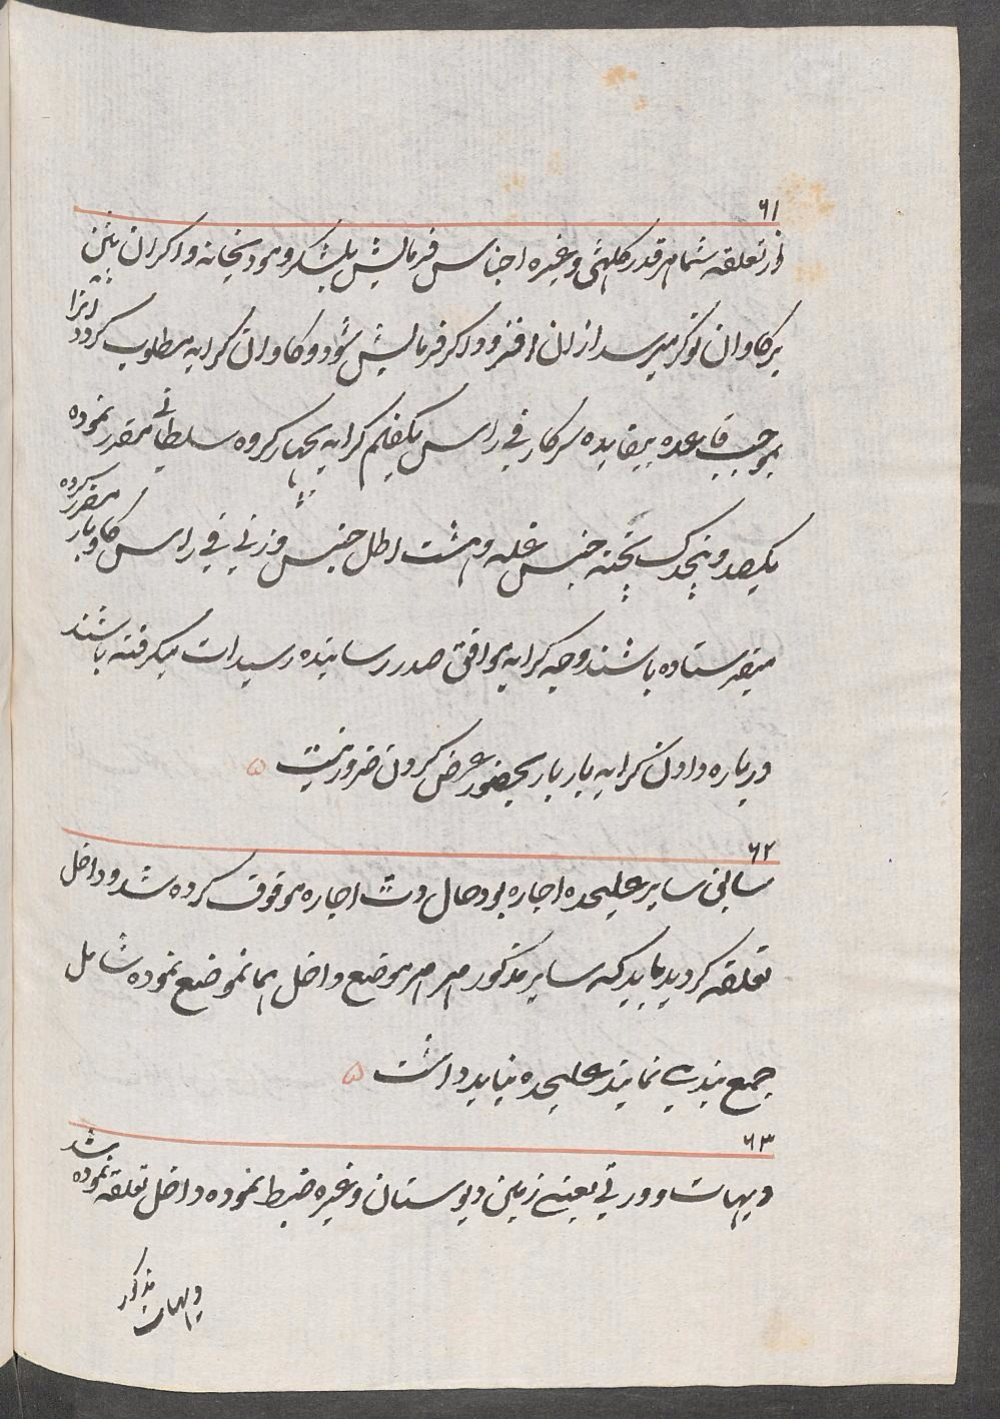 ۶۱
از تعلقه شما هر قدر کلهتی و غیره اجناس فرمایش بلشکر و هودیخانه و اکران
بر کاوان نوکر میرسد ازان افزود اکر فرمایش شود و کاوان کرایه مطلوب کردد انرا
بموجب قاعده بیفایده سرکار فی راس یکفلم کرایه یکچهار کروه سلطانی مقرر نموده
یکصد و پنجدک پخته جنس غله و هشت اطل جنس وزنی فی راس کاو بار مقرر کرده
میفرستاده باشند وجه کرایه موافق صدر رسانیده رسیدات میکرفته باشند
درباره دادن کرایه بار بار بحضور عرض کردن ضرور نیست ۵
۶۲
سابق سایر علیحده اجاره بود حال وقت اجاره موقوف کرده شد و داخل
تعلقه کردید باید که سایر مذکور هر هر موضع داخل همانموضع نموده شامل
جمع بندی نمایند علیحده نباید داشت ۵
۶۳
دیهات و ورتی یعنی زمین دیوستان و غیره ضبط نموده داخل تعلقه نموده شد
دیهات مذکور